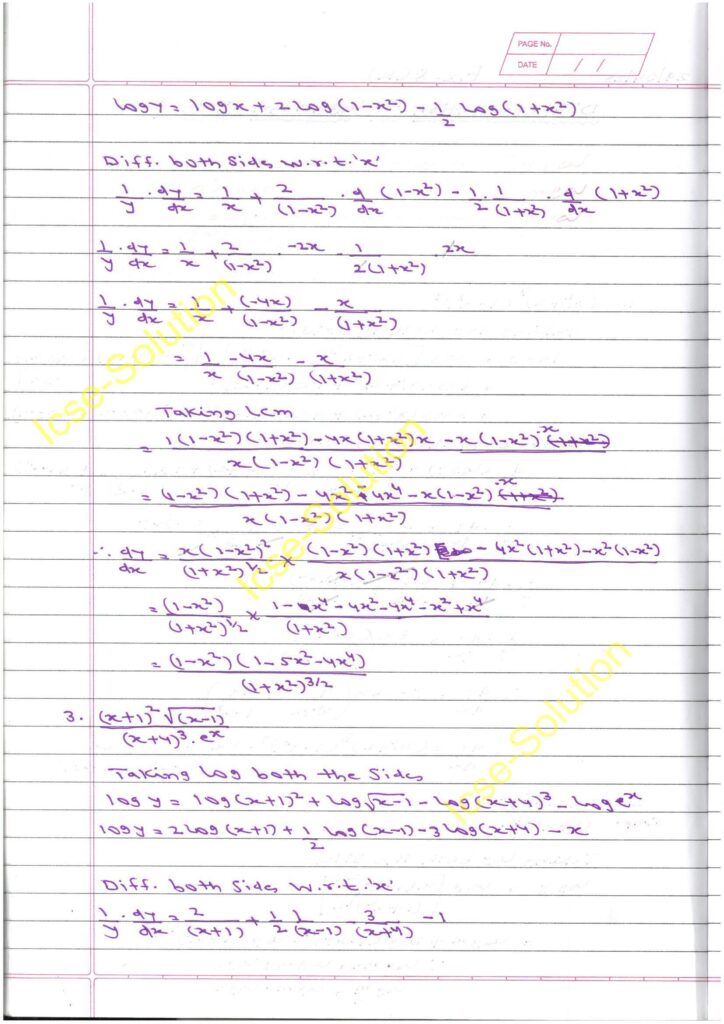 PAGE No.
DATE / /
log y = log x + 2 log (1-x²) - 1/2 log (1+x²)
Diff. both Sides w.r.t. 'x'
1/y · dy/dx = 1/x + 2/(1-x²) · d/dx (1-x²) - 1/2 · 1/(1+x²) · d/dx (1+x²)
1/y · dy/dx = 1/x + 2/(1-x²) · -2x - 1/2(1+x²) · 2x
1/y · dy/dx = 1/x + (-4x)/(1-x²) - x/(1+x²)
= 1/x - 4x/(1-x²) - x/(1+x²)
Taking LCM
= 1(1-x²)(1+x²) - 4x(1+x²)x - x(1-x²)·x / x(1-x²)(1+x²)
= (1-x²)(1+x²) - 4x² - 4x⁴ - x(1-x²)·x / x(1-x²)(1+x²)
∴ dy/dx = x(1-x²)²/(1+x²)^1/2 × (1-x²)(1+x²) - 4x²(1+x²) - x²(1-x²) / x(1-x²)(1+x²)
= (1-x²)/(1+x²)^1/2 × 1 - x⁴ - 4x² - 4x⁴ - x² + x⁴ / (1+x²)
= (1-x²)(1-5x²-4x⁴) / (1+x²)^3/2
3. (x+1)² √(x-1) / (x+4)³ · eˣ
Taking log both the Sides
log y = log (x+1)² + log √x-1 - log (x+4)³ - log eˣ
log y = 2 log (x+1) + 1/2 log (x-1) - 3 log (x+4) - x
Diff. both Sides w.r.t. 'x'
1/y · dy/dx = 2/(x+1) + 1/2 1/(x-1) - 3/(x+4) - 1
Icse-Solution
Icse-Solution
Icse-Solution